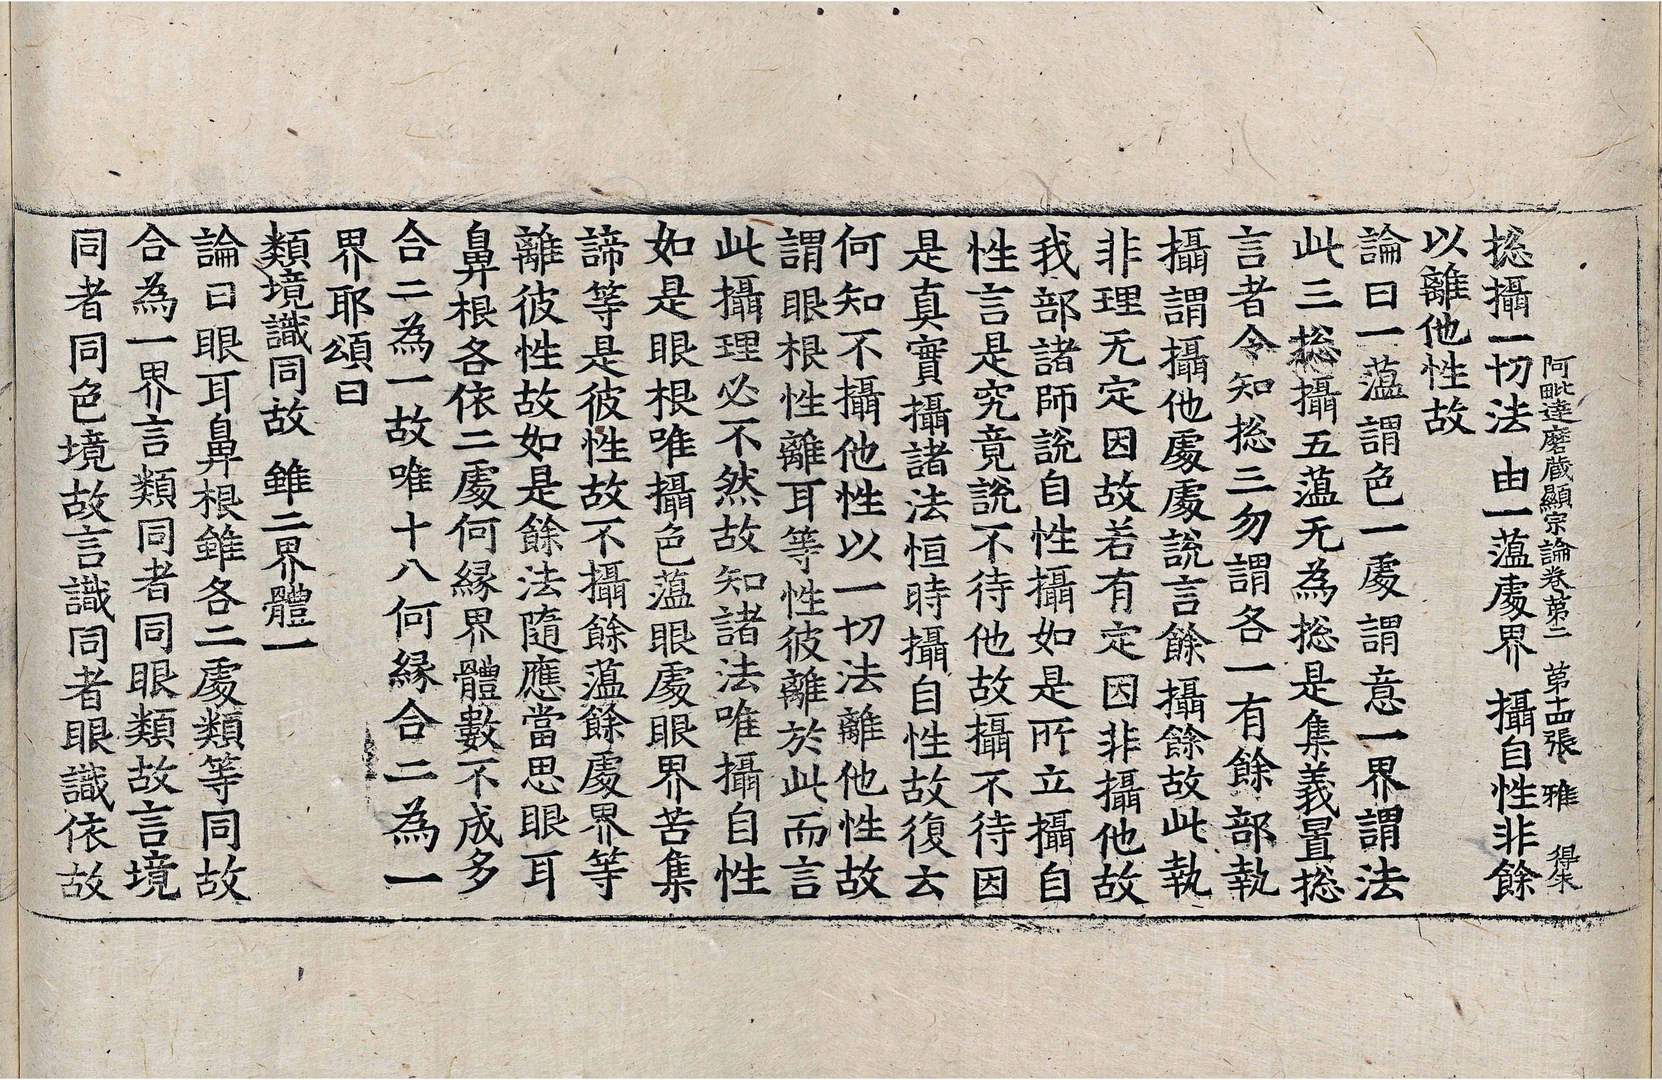 阿毗達磨藏顯宗論卷第二 第十四張 雅 得朱
捴攝一切法 由一薀處界 攝自性非餘
以離他性故
論曰一薀謂色一處謂意一界謂法
此三捴攝五薀无為捴是集義置捴
言者令知捴三勿謂各一有餘部執
攝謂攝他處處說言餘攝餘故此執
非理无定因故若有定因非攝他故
我部諸師說自性攝如是所立攝自
性言是究竟說不待他故攝不待因
是真實攝諸法恒時攝自性故復云
何知不攝他性以一切法離他性故
謂眼根性離耳等性彼離於此而言
此攝理必不然故知諸法唯攝自性
如是眼根唯攝色薀眼處眼界苦集
諦等是彼性故不攝餘薀餘處界等
離彼性故如是餘法隨應當思眼耳
鼻根各依二處何縁界體數不成多
合二為一故唯十八何縁合二為一
界耶頌曰
類境識同故 雖二界體一
論曰眼耳鼻根雖各二處類等同故
合為一界言類同者同眼類故言境
同者同色境故言識同者眼識依故